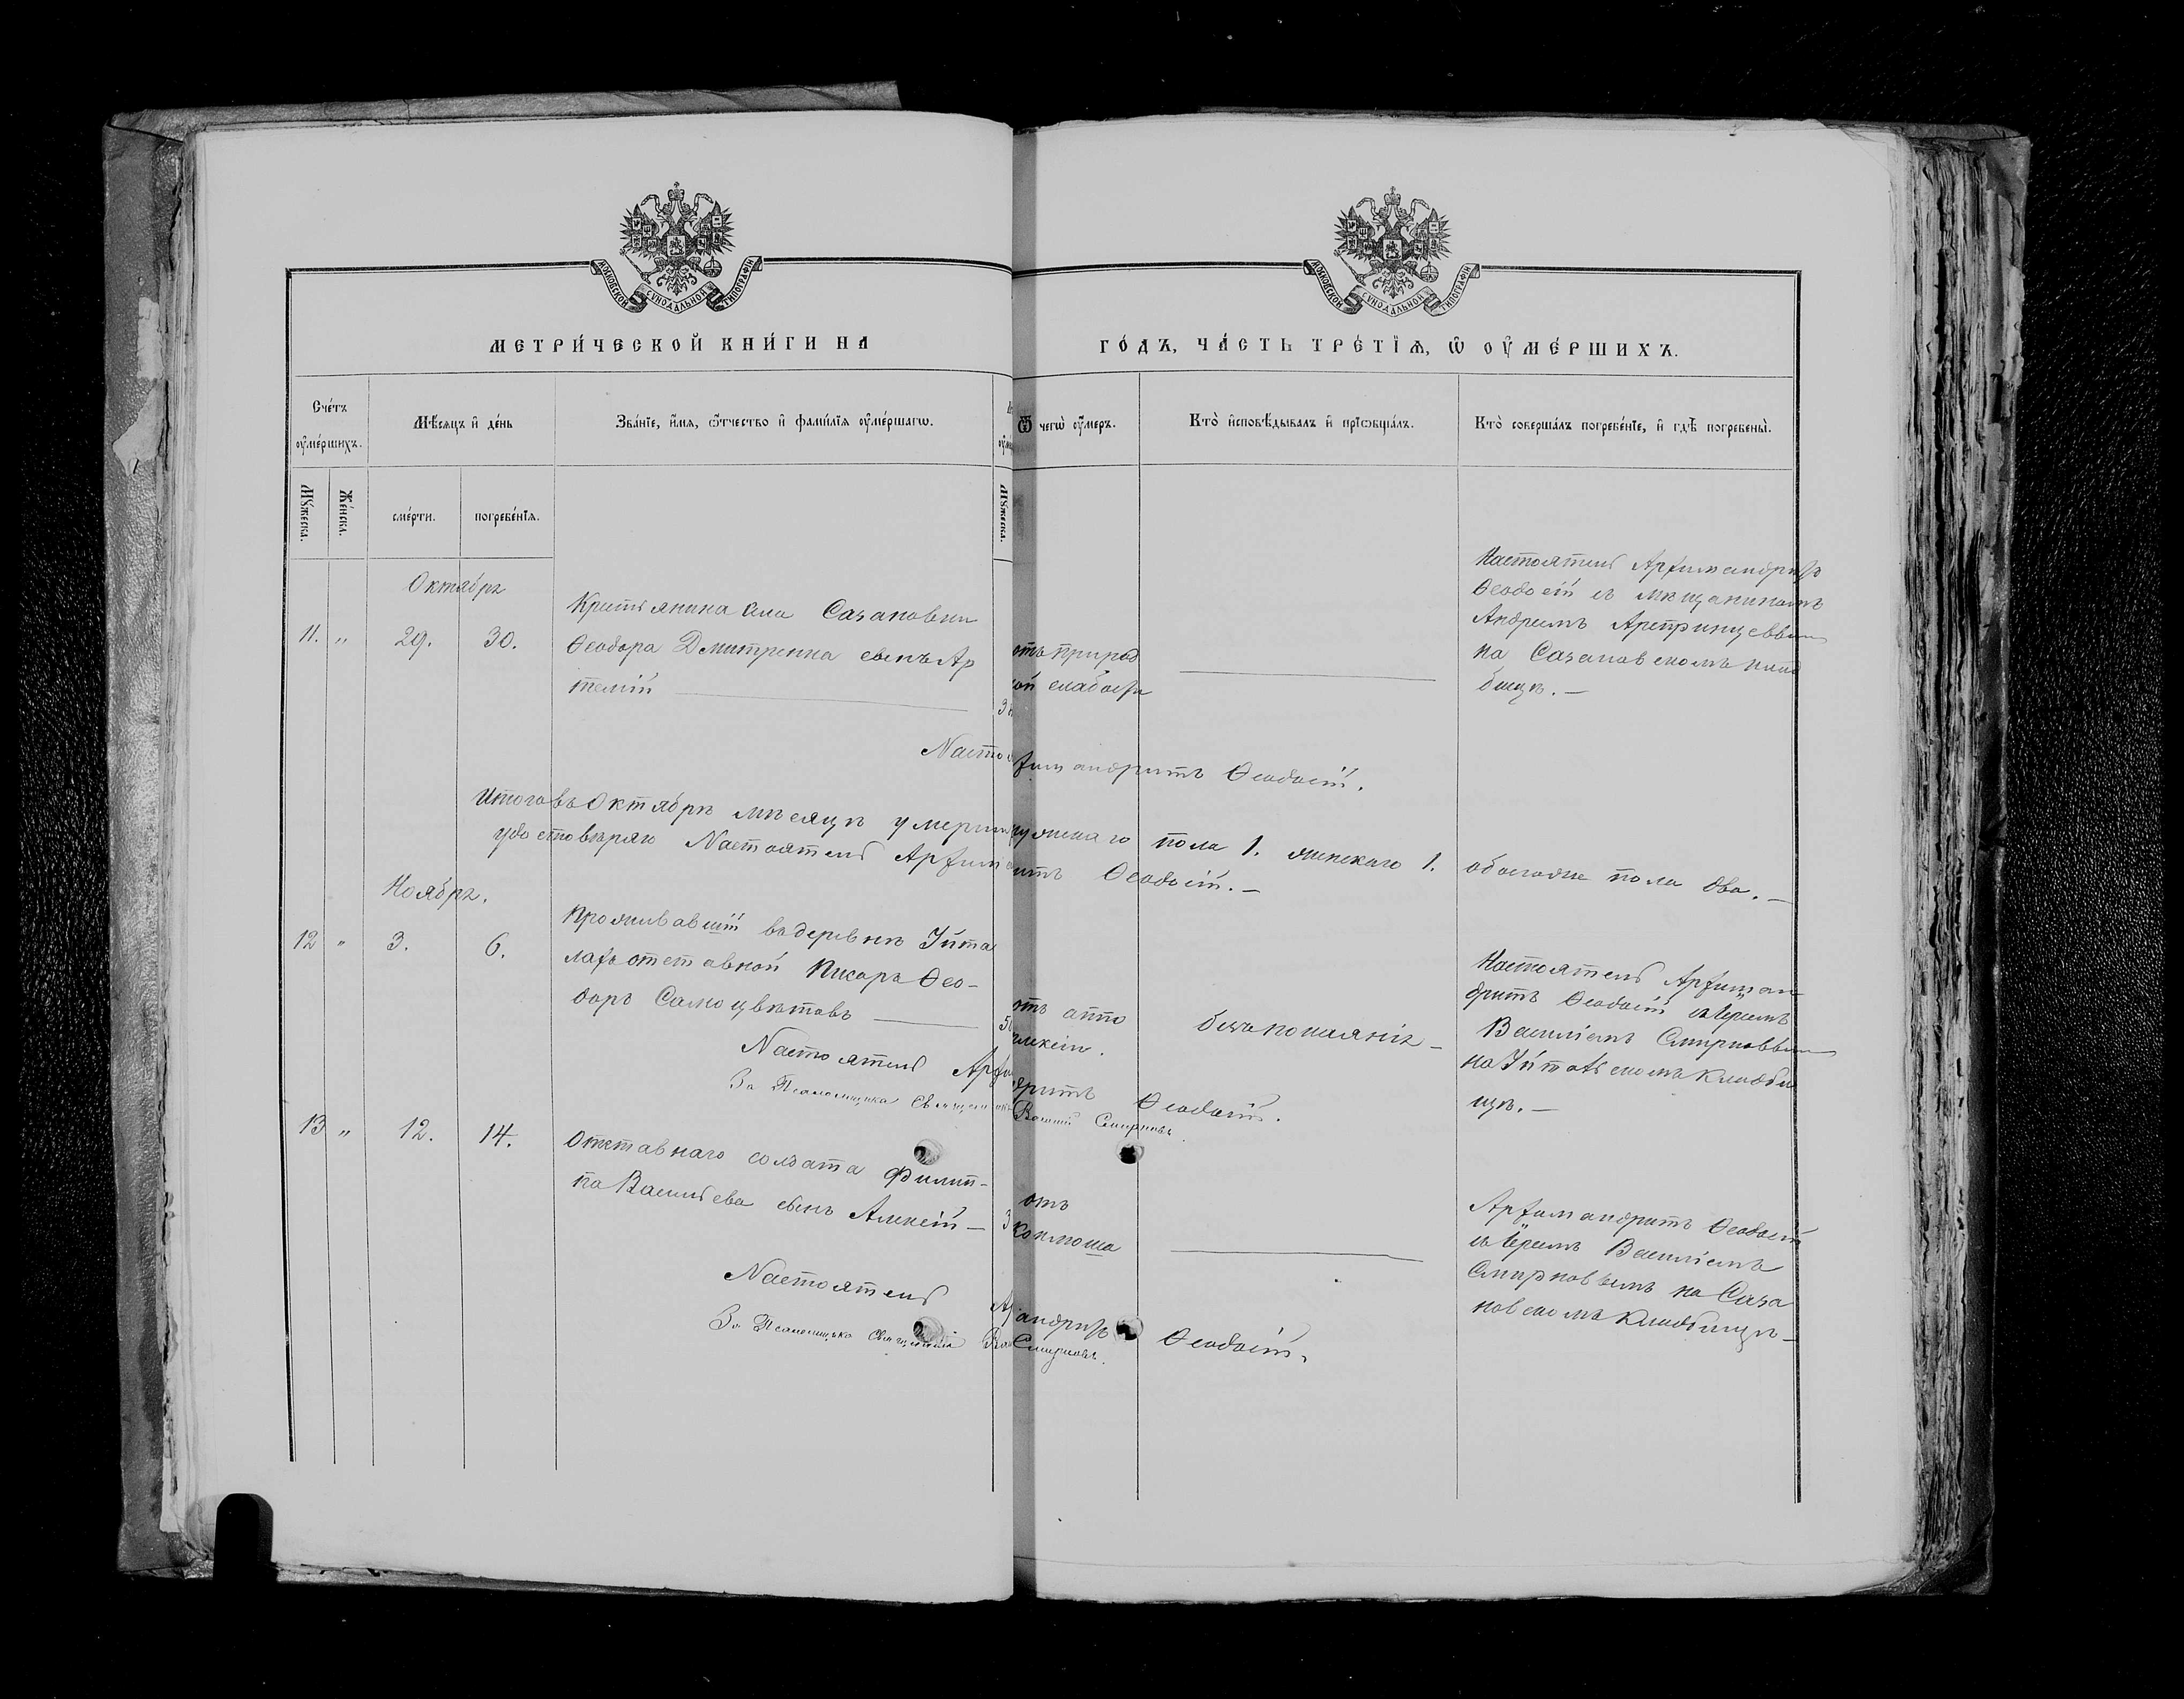 МОСКОВСКОЙ СУНОДАЛЬНОЙ ТИПОГРАФІИ
МОСКОВСКОЙ СУНОДАЛЬНОЙ ТИПОГРАФІИ
МЕТРИ́ЧЕСКОЙ КНИ́ГИ НА
ГО́ДЪ, ЧА́СТЬ ТРЕ́ТІѦ, Ѡ ОУМЕ́РШИХЪ.
Сче́тъ оуме́ршихъ.
Мѣ́сѧцъ и де́нь
Зва́нїе, и́мѧ, ѻ́тчество и фами́лїѧ оуме́ршагѡ.
Ѿ чегѡ̀ оу́меръ.
Кто̀ исповѣ́дывалъ и прїѡбща́лъ.
Кто̀ соверша́лъ погребе́нїе, и гдѣ̀ погребены̀.
Мꙋ́жеска.
Же́нска.
сме́рти.
погребе́нїѧ.
Мꙋ́жеска.
Октябрь
11. „ 29. 30.
Крестьянина села Сазановки
Ѳеодора Дмитренка сынъ Ар
темій
отъ природ
ной слабости
Настоятель Архимандритъ
Ѳеодосій съ мѣщаниномъ
Андреемъ
на Сазановскомъ клад
бищѣ. —
Насто
химандритъ Ѳеодосій.
Итого въ Октябрѣ мѣсяцѣ умерш мужскаго пола 1. женскаго 1. обоегоже пола два. —
удостовѣряю Настоятель Архим итъ Ѳеодосій. —
Ноябрь.
12 „ 3. 6.
Проживавшій въ деревнѣ Уйта
лахъ отставной Писарь Ѳео-
доръ Самоцвѣтовъ
отъ аппо
плексіи.
безъ покаянія —
Настоятель Архиман-
дритъ Ѳеодосій съ Іереемъ
Василіемъ Смирновымъ
на Уйтальскомъ кладби
щѣ. —
Настоятель Архи
дритъ Ѳеодосій.
За Псаломщика Священникъ Василій Смирновъ.
13 „ 12. 14.
Отставнаго солдата Филип-
па Васильева сынъ Алексѣй — 3
отъ
коклюша
Архимандритъ Ѳеодосій
съ Іереемъ Василіемъ
Смирновымъ на Саза
новскомъ Кладбищѣ —
Настоятель Ар
андритъ Ѳеодосій.
За Псаломщика Священникъ Вас Смирновъ.